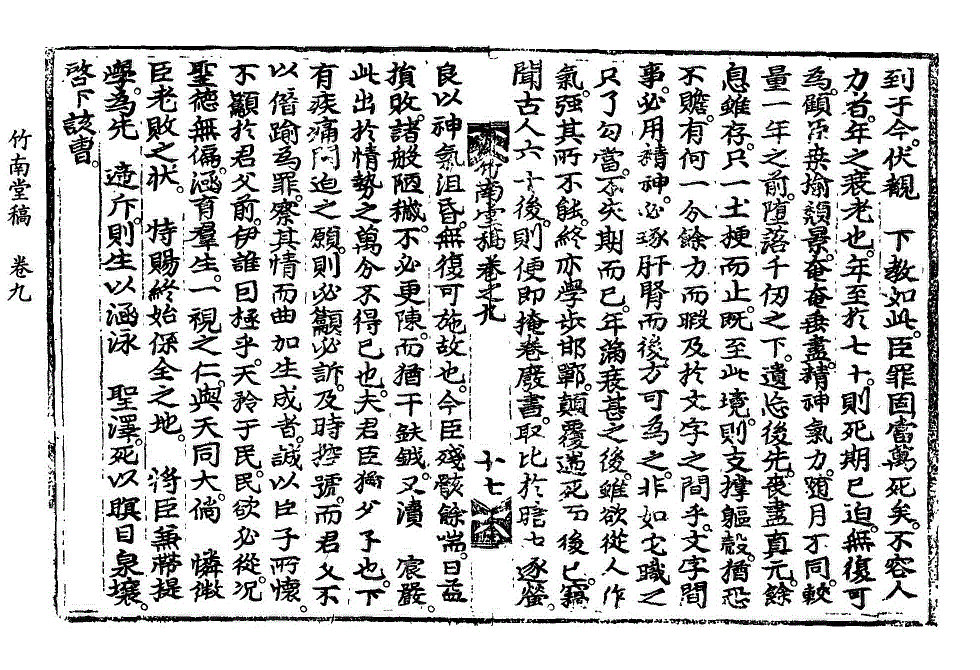 到于今。伏覩 下敎如此。臣罪固當萬死矣。不容人
力者。年之衰老也。年至於七十。則死期已迫。無復可
爲。顧臣桑揄頹景。奄奄垂盡。精神氣力。隨月不同。較
量一年之前。墮落千仞之下。遺忘後先。喪盡眞元。餘
息雖存。只一土梗而止。旣至此境。則支撑軀殼。猶恐
不贍。有何一分餘力而暇及於文字之間乎。文字間
事。必用精神。必琢肝腎而後。方可爲之。非如宅職之
只了勾當。不失期而已。年滿衰甚之後。雖欲從人作
氣。强其所不能。終亦學步邯鄲。顚覆濱死而後已。竊
聞古人六十後。則便卽掩卷廢書。取比於暗七逐螢。
竹南堂稿卷之九 十七
良以神氣沮昏。無復可施故也。今臣殘骸餘喘。日益
損敗。諸般陋穢。不必更陳。而猶干鈇鉞。又瀆 宸嚴。
此出於情勢之萬分不得已也。夫君臣猶父子也。下
有疾痛悶迫之願。則必籲必訴。及時控號。而君父不
以僭踰爲罪。察其情而曲加生成者。誠以臣子所懷。
不籲於君父前。伊誰曰極乎。天矜于民。民欲必從。况
聖德無偏。涵育羣生。一視之仁。與天同大。倘 憐微
臣老敗之狀。 特賜終始保全之地。 將臣兼帶提
學。爲先 遞斥。則生以涵泳 聖澤。死以瞑目泉壤。
啓下該曹。
竹南堂稿 卷九